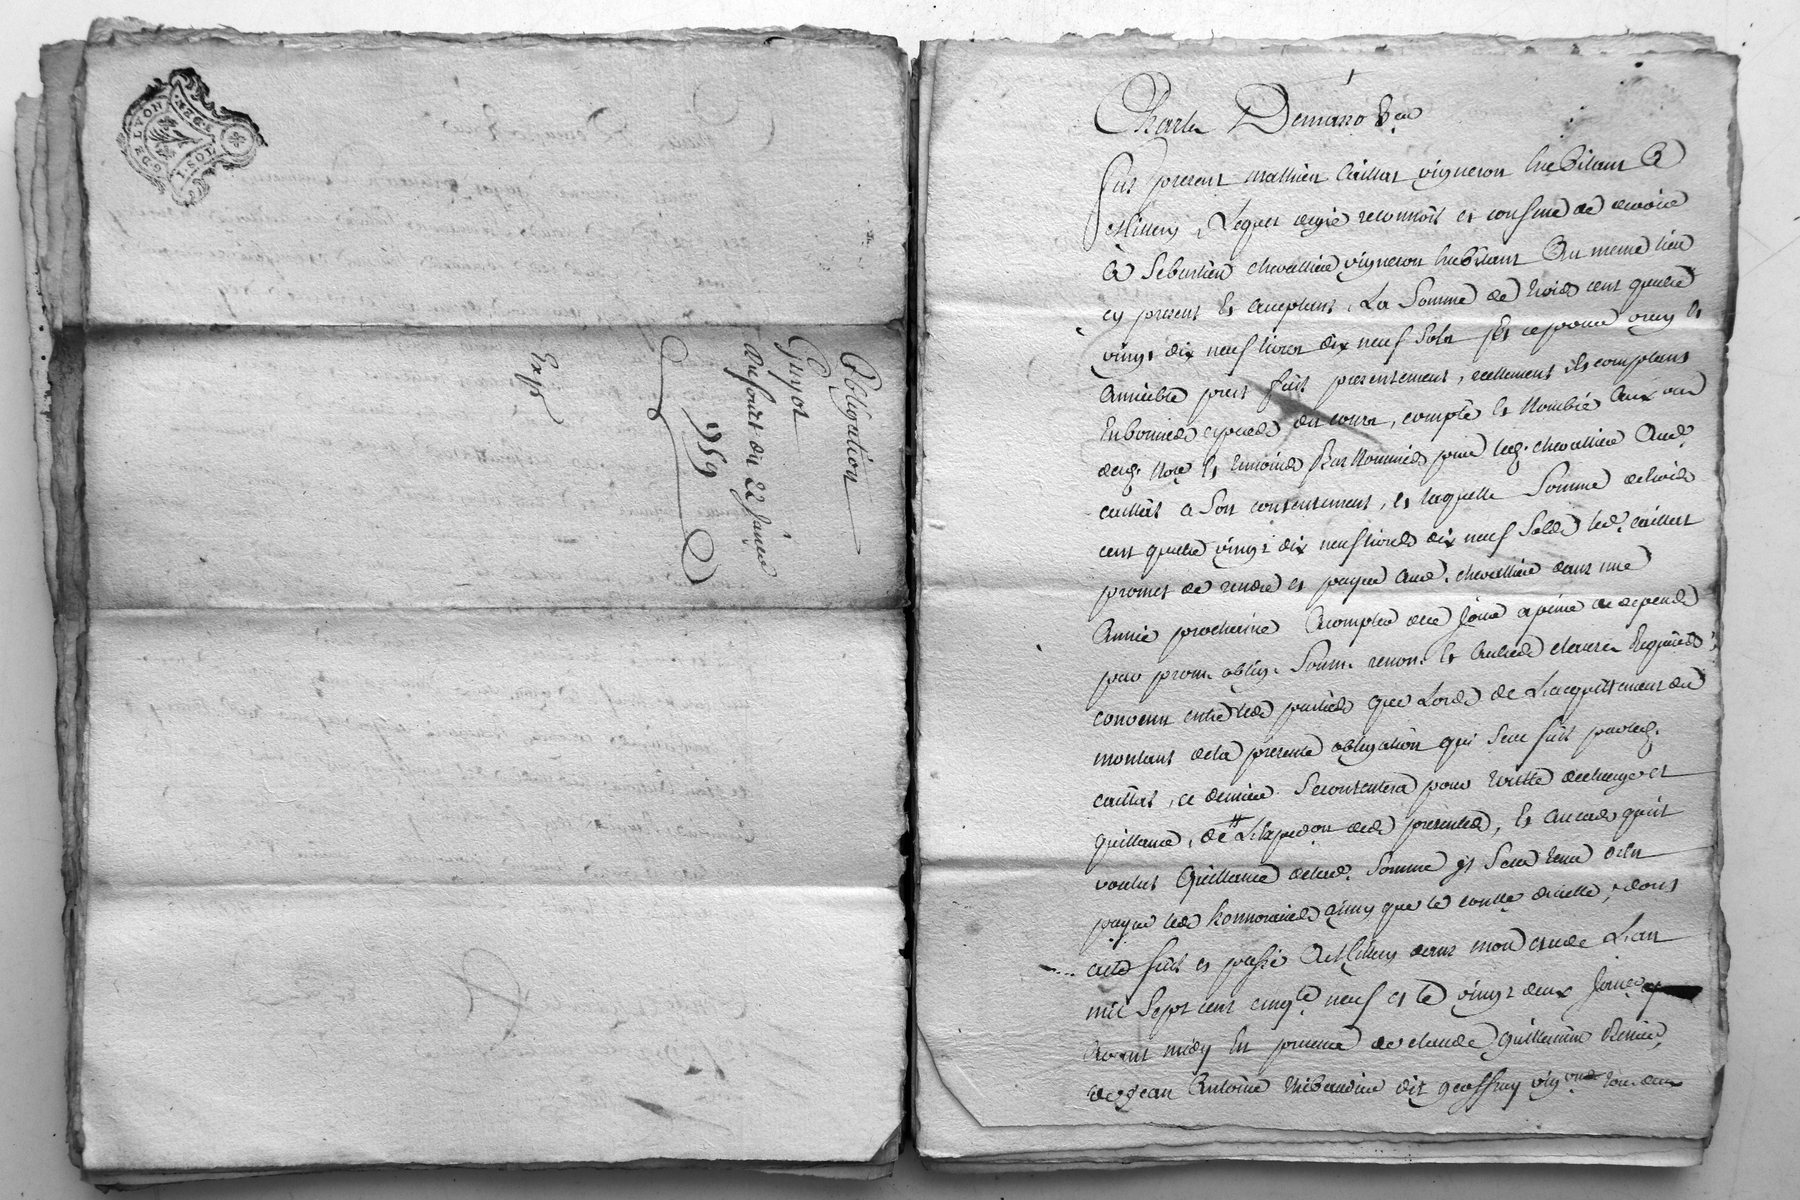 LYON
1 SOL
Obligation
Guyot
du 22 Janvier
1759
Exp
Charles Demano
fut present mathieu Caillat vigneron habitant a
Millery, Lequel degré reconnoit et confesse de devoir
à Sebastien chevallier vigneron habitant Au meme lieu
cy present Et acceptant, La Somme de trois cent quatre
vingt dix neuf livres dix neuf Sols pour vray Et
Amiable prest fait presentement, reellement et comptant
En bonnes especes du cours, compté Et Nombré Aux vue
dud. Nore Et temoins Bas Nommés par led. chevallier Aud.
caillat a Son contentement, Et laquelle Somme de trois
cent quatre vingt dix neuf livres dix neuf Sols led. caillat
promet de rendre et payer Aud. chevallier dans une
Année prochaine A compter de ce Jour a peine de depends
par prom. oblig. Soum. renon. Et Autres clauses Requises
convenu entre les parties que Lors de L'acquittement du
montant de la presente obligation qui Sera fait par led.
caillat, ce dernier Se contentera pour toutte decharge et
quittance, de L'Expedition des presentes, Et au cas qu'il
voulut Quittance de lad. Somme il Sera tenu d'En
payer les honnoraires ainsy que le coutte d'icelle, dont
acte fait et passé A Millery dans mon etude L'an
mil Sept cent cinqte neuf et le vingt deux Janvier
Avant midy En presence de claude Guillermin
de Jean Antoine thibaudier dit geoffray vigron tous deux